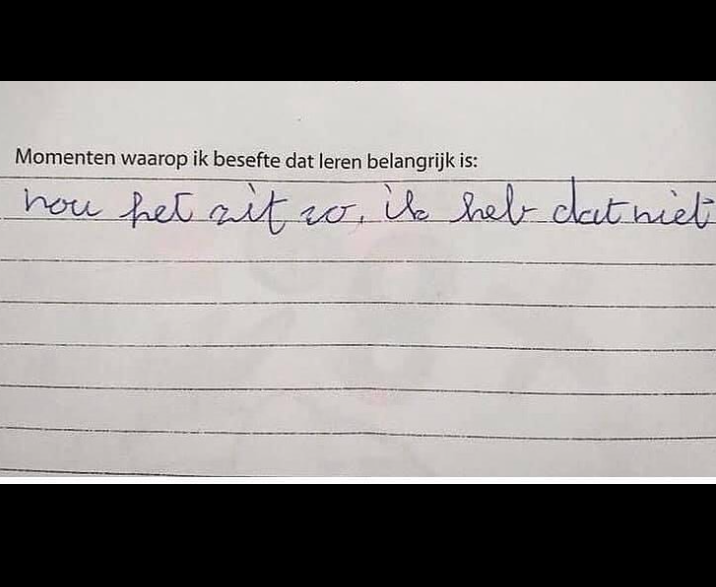 Momenten waarop ik besefte dat leren belangrijk is:
nou het zit zo, ik heb dat niet